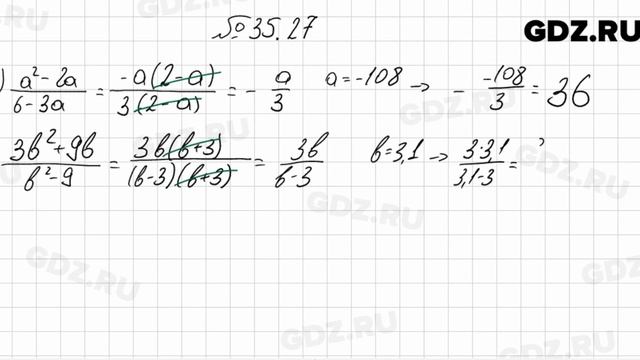 GDZ.RU
№35.27
) (a²-2a)/(6-3a) = (-a(2-a))/(3(2-a)) = - a/3 a=-108 → - (-108)/3 = 36
(3b²+9b)/(b²-9) = (3b(b+3))/((b-3)(b+3)) = 3b/(b-3) b=3,1 → (3·3,1)/(3,1-3) =